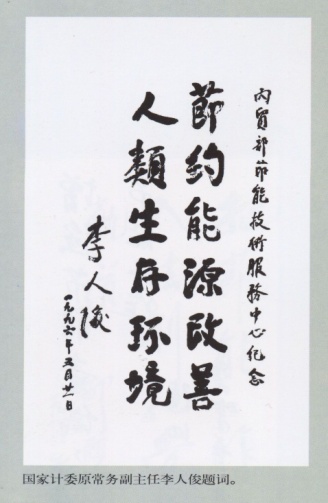 内贸部节能技术服务中心纪念
節约能源改善
人類生存环境
李人俊
一九九六年五月廿一日
国家计委原常务副主任李人俊题词。